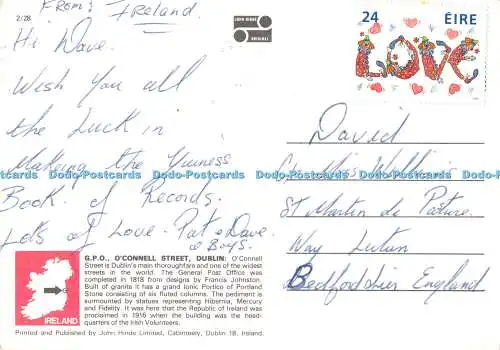 From: Ireland.
2/28
JOHN HINDE
ORIGINAL
24 ÉIRE
LOVE
Hi Dave.
Wish You all
the Luck in
Making the Guiness
Book of Records.
Lots of Love. Pat & Dave.
& Boys.
David
St Martin de Pature.
Way Luton
Bedfordshire England
Dodo-Postcards Dodo-Postcards Dodo-Postcards Dodo-Postcards
IRELAND
G.P.O., O'CONNELL STREET, DUBLIN: O'Connell
Street is Dublin's main thoroughfare and one of the widest
streets in the world. The General Post Office was
completed in 1818 from designs by Francis Johnston.
Built of granite it has a grand Ionic Portico of Portland
Stone consisting of six fluted columns. The pediment is
surmounted by statues representing Hibernia, Mercury
and Fidelity. It was here that the Republic of Ireland was
proclaimed in 1916 when the building was the head-
quarters of the Irish Volunteers.
Printed and Published by John Hinde Limited, Cabinteely, Dublin 18, Ireland.